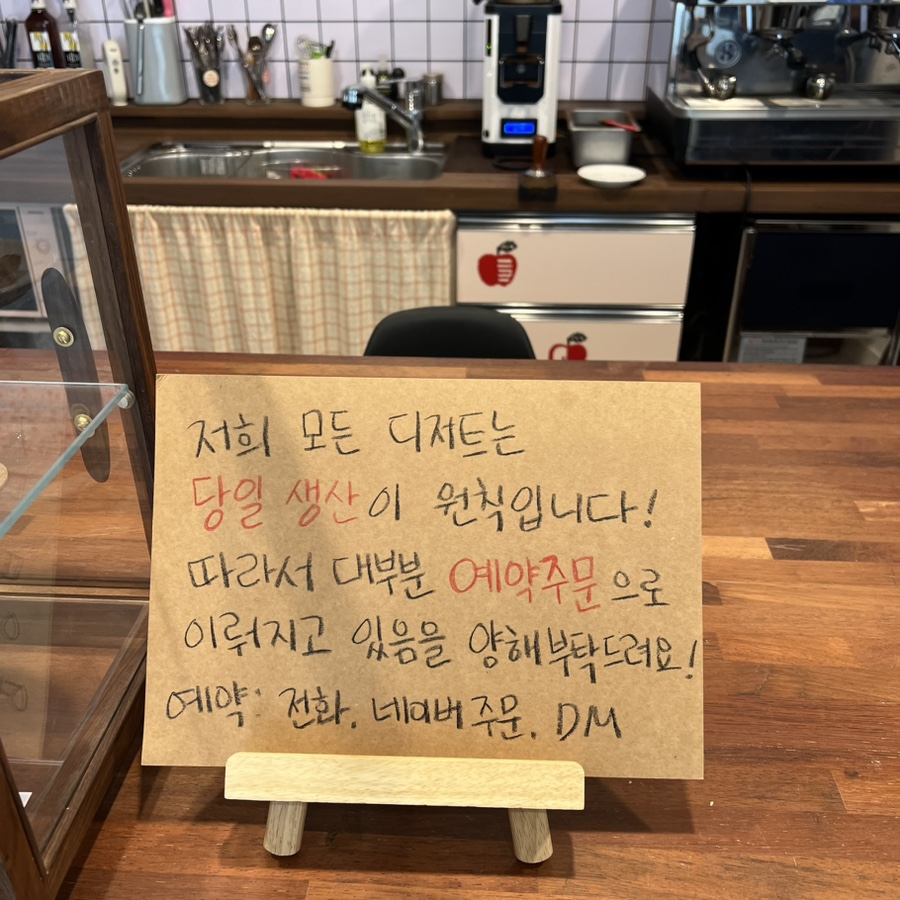 저희 모든 디저트는
당일 생산이 원칙입니다!
따라서 대부분 예약주문으로
이뤄지고 있음을 양해부탁드려요!
예약: 전화. 네이버주문. DM